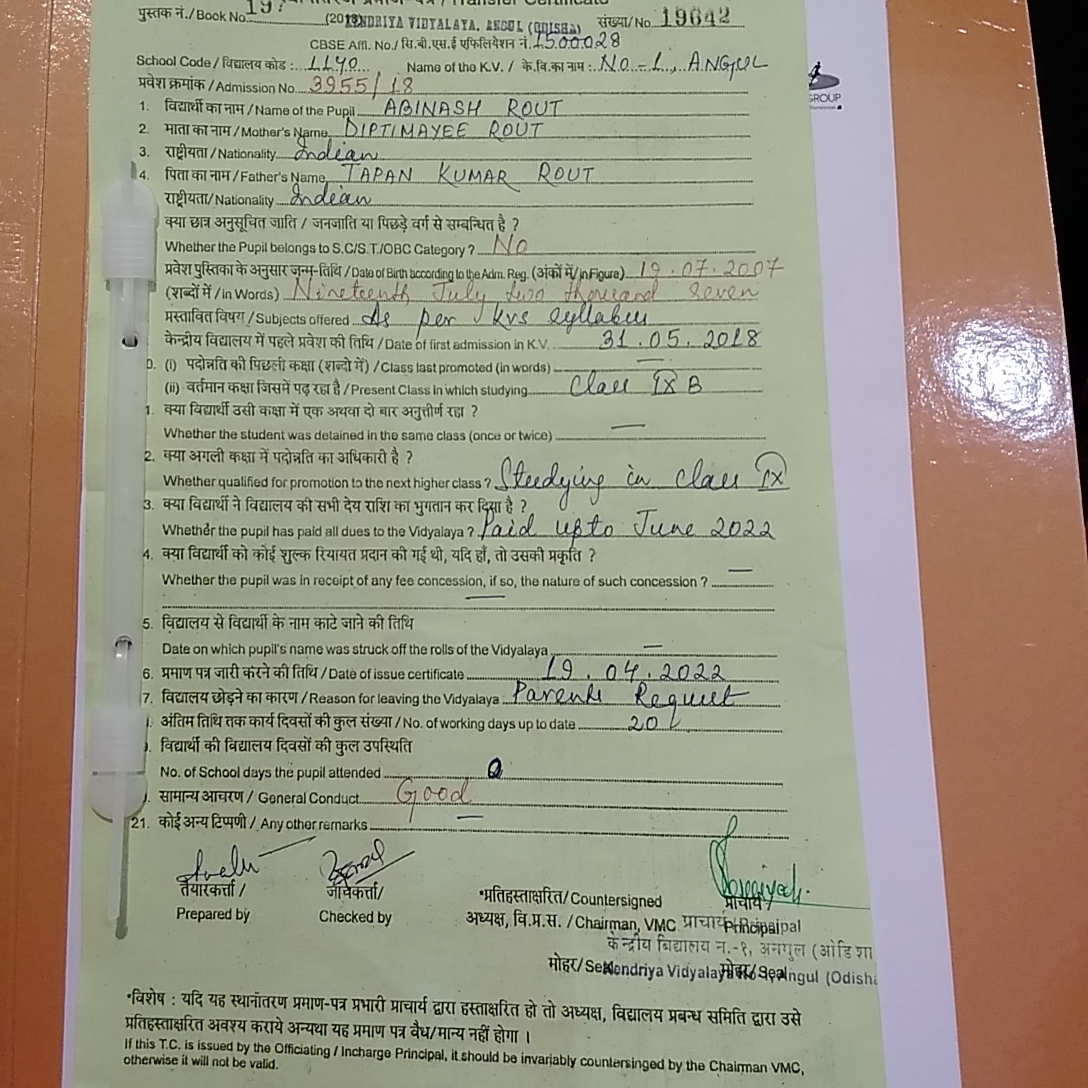 Transfer Certificate
पुस्तक नं./Book No. 197 KENDRIYA VIDYALAYA, ANGUL (ODISHA) संख्या/No. 19642
CBSE Affl. No./सि.बी.एस.ई एफिलियेशन नं. 1500028
School Code / विद्यालय कोड : 1140 Name of the K.V. / के.वि.का नाम : No-1, ANGUL
प्रवेश क्रमांक / Admission No. 3955/18
GROUP
1. विद्यार्थी का नाम / Name of the Pupil ABINASH ROUT
2. माता का नाम / Mother's Name DIPTIMAYEE ROUT
3. राष्ट्रीयता / Nationality Indian
4. पिता का नाम / Father's Name TAPAN KUMAR ROUT
राष्ट्रीयता/ Nationality Indian
क्या छात्र अनुसूचित जाति / जनजाति या पिछड़े वर्ग से सम्बन्धित है ?
Whether the Pupil belongs to S.C/S.T./OBC Category ? No
प्रवेश पुस्तिका के अनुसार जन्म-तिथि / Date of Birth according to the Adm. Reg. (अंकों में/in Figure) 19.07.2007
(शब्दों में / in Words) Nineteenth July two thousand Seven
प्रस्तावित विषय / Subjects offered As per KVS syllabus
केन्द्रीय विद्यालय में पहले प्रवेश की तिथि / Date of first admission in K.V. 31.05.2018
0. (i) पदोन्नति की पिछली कक्षा (शब्दो में) / Class last promoted (in words) —
(ii) वर्तमान कक्षा जिसमें पढ़ रहा है / Present Class in which studying Class IX B
1. क्या विद्यार्थी उसी कक्षा में एक अथवा दो बार अनुत्तीर्ण रहा ?
Whether the student was detained in the same class (once or twice) —
2. क्या अगली कक्षा में पदोन्नति का अधिकारी है ?
Whether qualified for promotion to the next higher class ? Studying in class IX
3. क्या विद्यार्थी ने विद्यालय की सभी देय राशि का भुगतान कर दिया है ?
Whether the pupil has paid all dues to the Vidyalaya ? Paid upto June 2022
4. क्या विद्यार्थी को कोई शुल्क रियायत प्रदान की गई थी, यदि हाँ, तो उसकी प्रकृति ?
Whether the pupil was in receipt of any fee concession, if so, the nature of such concession ? —
5. विद्यालय से विद्यार्थी के नाम काटे जाने की तिथि
Date on which pupil's name was struck off the rolls of the Vidyalaya —
6. प्रमाण पत्र जारी करने की तिथि / Date of issue certificate 19.04.2022
7. विद्यालय छोड़ने का कारण / Reason for leaving the Vidyalaya Parents Request
अंतिम तिथि तक कार्य दिवसों की कुल संख्या / No. of working days up to date 201
विद्यार्थी की विद्यालय दिवसों की कुल उपस्थिति
No. of School days the pupil attended
सामान्य आचरण / General Conduct Good
21. कोई अन्य टिप्पणी / Any other remarks —
तैयारकर्त्ता / जाँचकर्त्ता/ *प्रतिहस्ताक्षरित/ Countersigned प्राचार्य /
Prepared by Checked by अध्यक्ष, वि.प्र.स. / Chairman, VMC प्राचार्य/Principal Principal
केन्द्रीय विद्यालय न.-१, अनगुल (ओडिशा
मोहर/Seal Kendriya Vidyalaya मोहर/Seal Angul (Odisha
*विशेष : यदि यह स्थानांतरण प्रमाण-पत्र प्रभारी प्राचार्य द्वारा हस्ताक्षरित हो तो अध्यक्ष, विद्यालय प्रबन्ध समिति द्वारा उसे
प्रतिहस्ताक्षरित अवश्य कराये अन्यथा यह प्रमाण पत्र वैध/मान्य नहीं होगा ।
If this T.C. is issued by the Officiating / Incharge Principal, it should be invariably countersinged by the Chairman VMC,
otherwise it will not be valid.